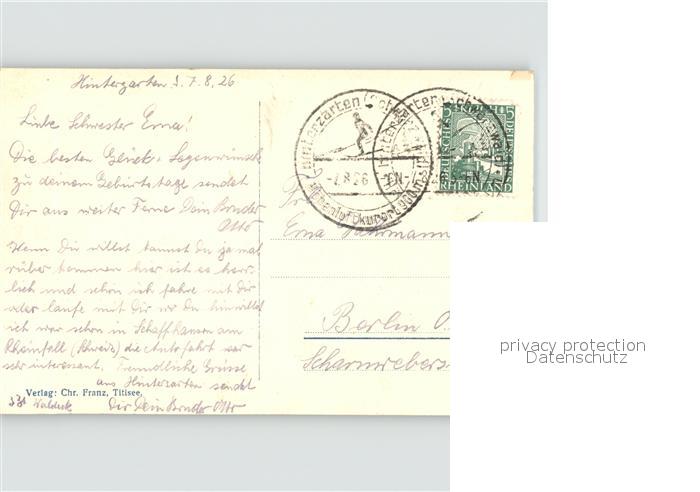 Hinterzarten d. 7.8.26
Liebe Schwester Erna!
Die besten Glück- & Segenwünsche
zu deinem Geburtstage sendet
Dir aus weiter Ferne Dein Bruder
Otto
Wenn Du willst kannst Du ja mal
rüber kommen hier ist es herr-
lich und schön ich fahre mit Dir
oder laufe mit Dir wo Du hinwillst
ich war schon in Schaffhausen am
Rheinfall (Schweiz) die Autofahrt war
sehr interessant. Freundliche Grüsse
aus Hinterzarten sendet
Dir Dein Bruder Otto
Verlag: Chr. Franz, Titisee.
Hinterzarten (Schwarzwald)
-7.8.26
Höhenluftkurort 900m
5
RHEINLAND
Erna
Berlin O.
privacy protection
Datenschutz